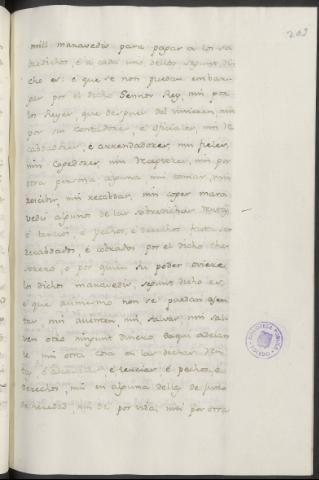 203
mill maravedis para pagar a los sa
bredichos, é a cada uno dellos segunt di
cho es: é que se non puedan embar
gar por el dicho Sennor Rey, nin por
los Reyes que despues del vinieren, nin
por sus Contadores, é oficiales, nin re
cabdadores, é arrendadores, nin fieles,
nin Cogedores, nin receptores, nin por
otra persona alguna nin tomar, nin
recibir, nin recabdar, nin coger mara
vedis algunos de las sobredichas rentas
é tercias é pechos, é derechos fasta ser
recabdados, é cobrados por el dicho the
sorero, o por quien su poder oviere
los dichos maravedis, segunt dicho es,
é que asimismo non se puedan asen
tar, nin asienten, nin salvar nin sal
ven otro ningunt dinero daqui adelan
te nin otra cosa en las dichas ren
tas, é tercias, é pechos, é
derechos, nin en alguna dellas de juro
de heredad, nin de por vida, nin por otra
BIBLIOTECA PUBLICA
TOLEDO